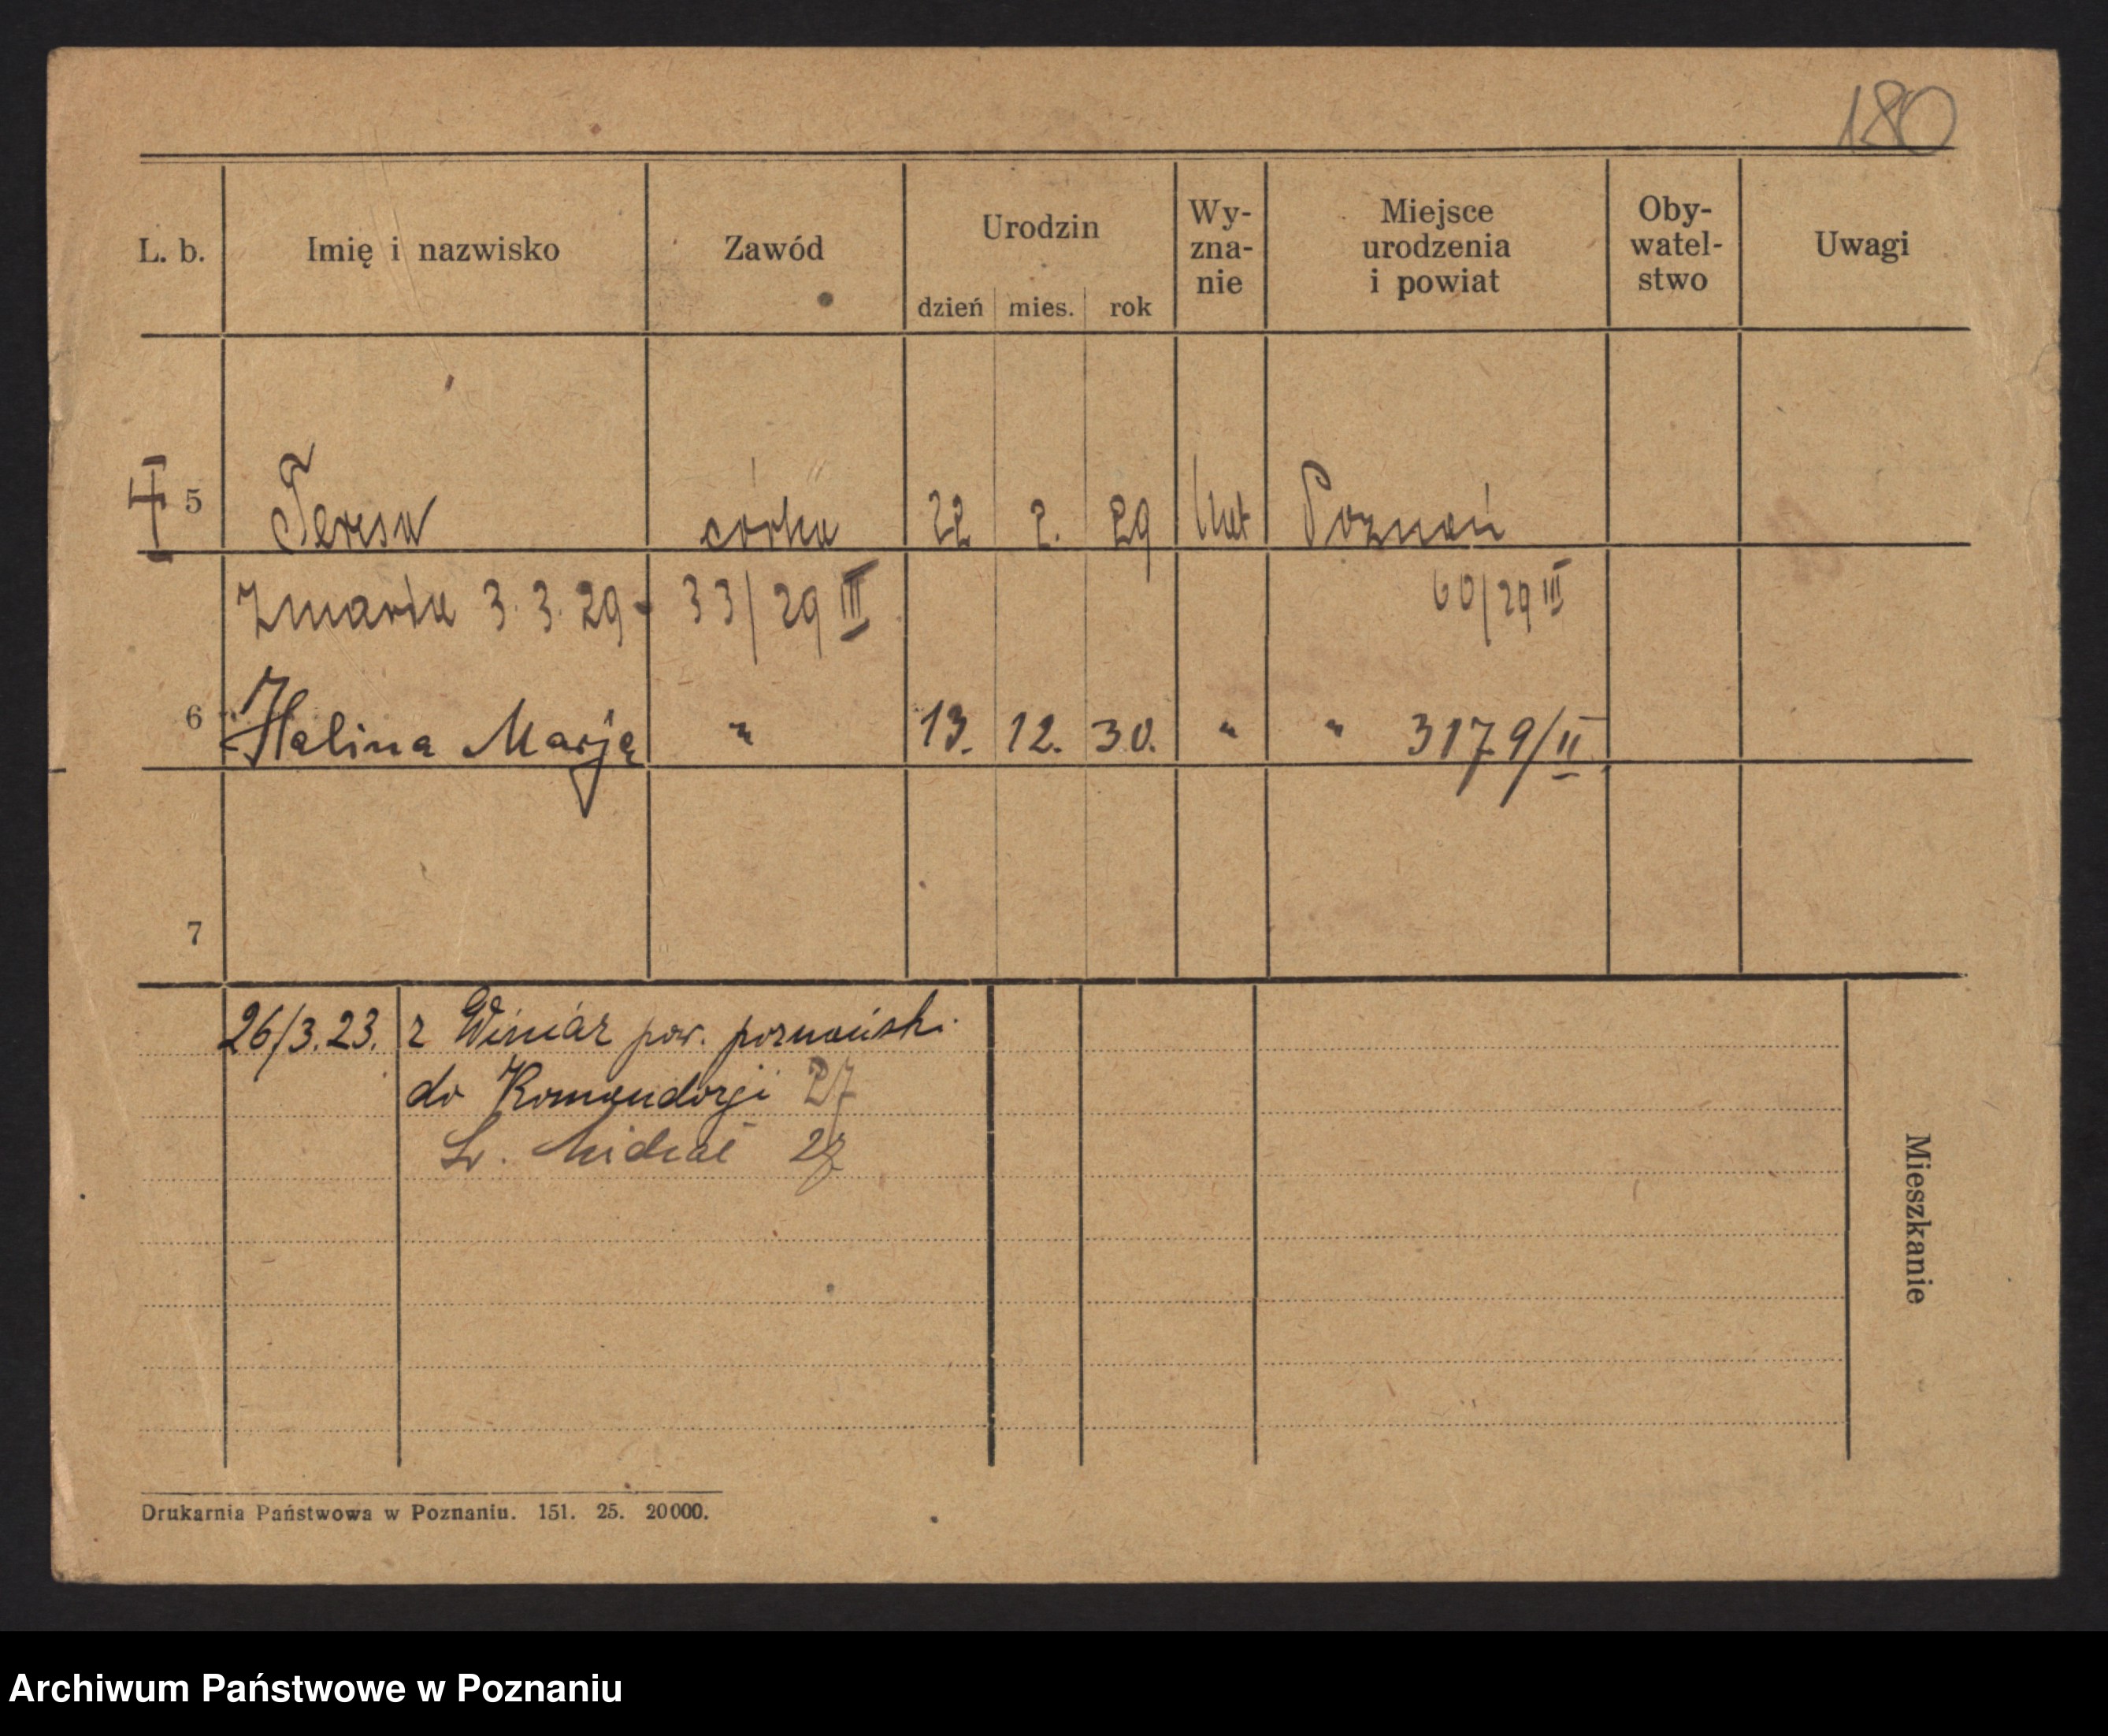 180
L. b. Imię i nazwisko Zawód Urodzin Wy-zna-nie Miejsce urodzenia i powiat Oby-watel-stwo Uwagi
dzień mies. rok
5 Teresa córka 22 2. 29 kat Poznań
Zmarła 3. 3. 29 33/29 III 60/29 III
6 Halina Marja " 13. 12. 30. " " 3179/II
7
26/3.23. z Winiar pow. poznański.
do Komandorji 27
Św. Michał 27
Mieszkanie
Drukarnia Państwowa w Poznaniu. 151. 25. 20000.
Archiwum Państwowe w Poznaniu